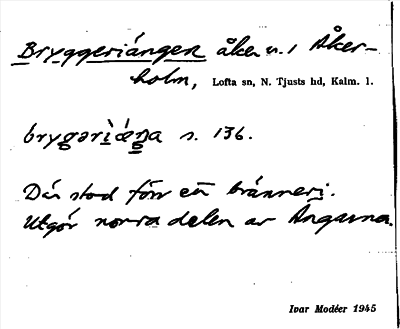 Bryggeriängen åker n. 1 Åker-
holm, Lofta sn, N. Tjusts hd, Kalm. l.
s. 136.
Där stod förr ett bränneri.
Utgör norra delen av Ängarna.
Ivar Modéer 1945